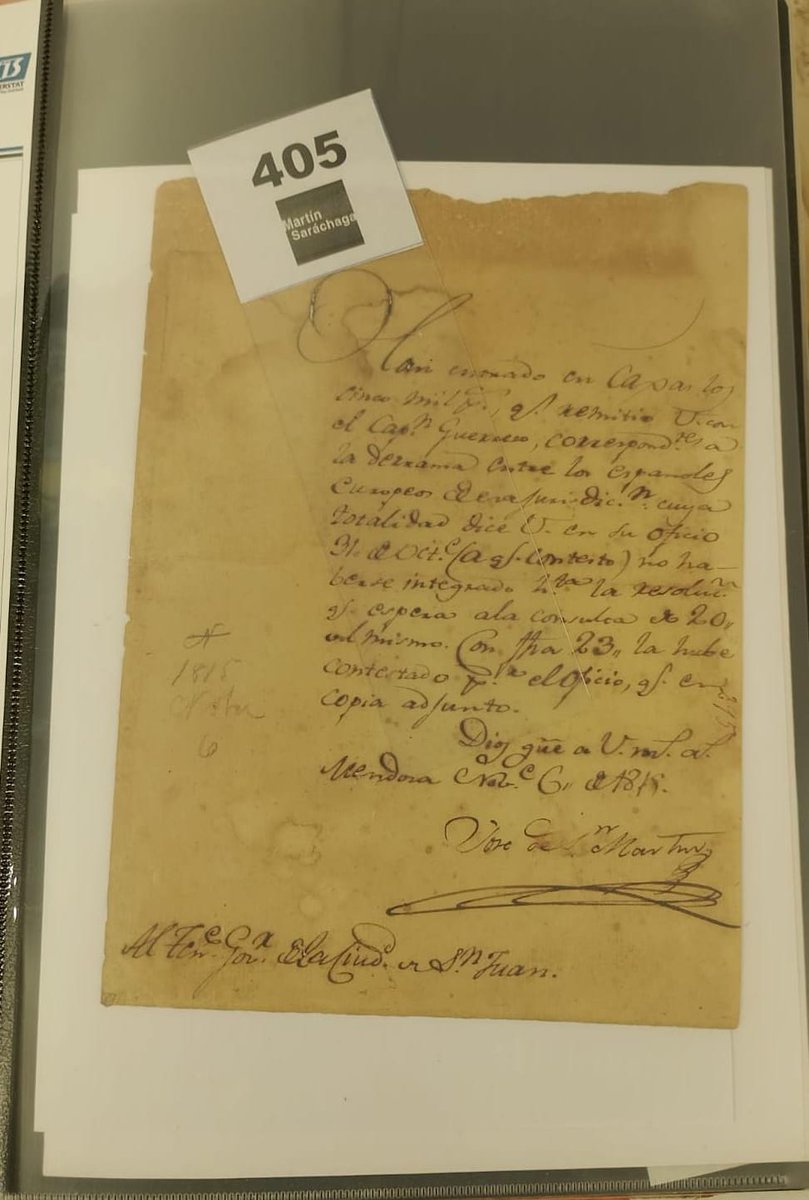 TS
ERSTAT
405
Martín
Saráchaga
Han entrado en Caxas los
cinco mil p.s, q.e remitio V. con
el Cap.n Guerrero, correspond.tes a
la derrama entre los españoles
Europeos de esa jurisdic.n cuya
totalidad dice V. en su oficio
31 de Oct.e (a q.e contesto) no ha-
berse integrado h.ta la resoluc.n
q.e espera a la consulta de 20,,
del mismo. Con fha 23,, la hube
contestado p.r el Oficio, q.e en
copia adjunto.
Dios gũe a V. m.s a.s
Mendoza Nov.e 6,, de 1815.
Jose de S.n Martin
Al Ten.e Gov.r de la Ciud.d de S.n Juan.
1815
6